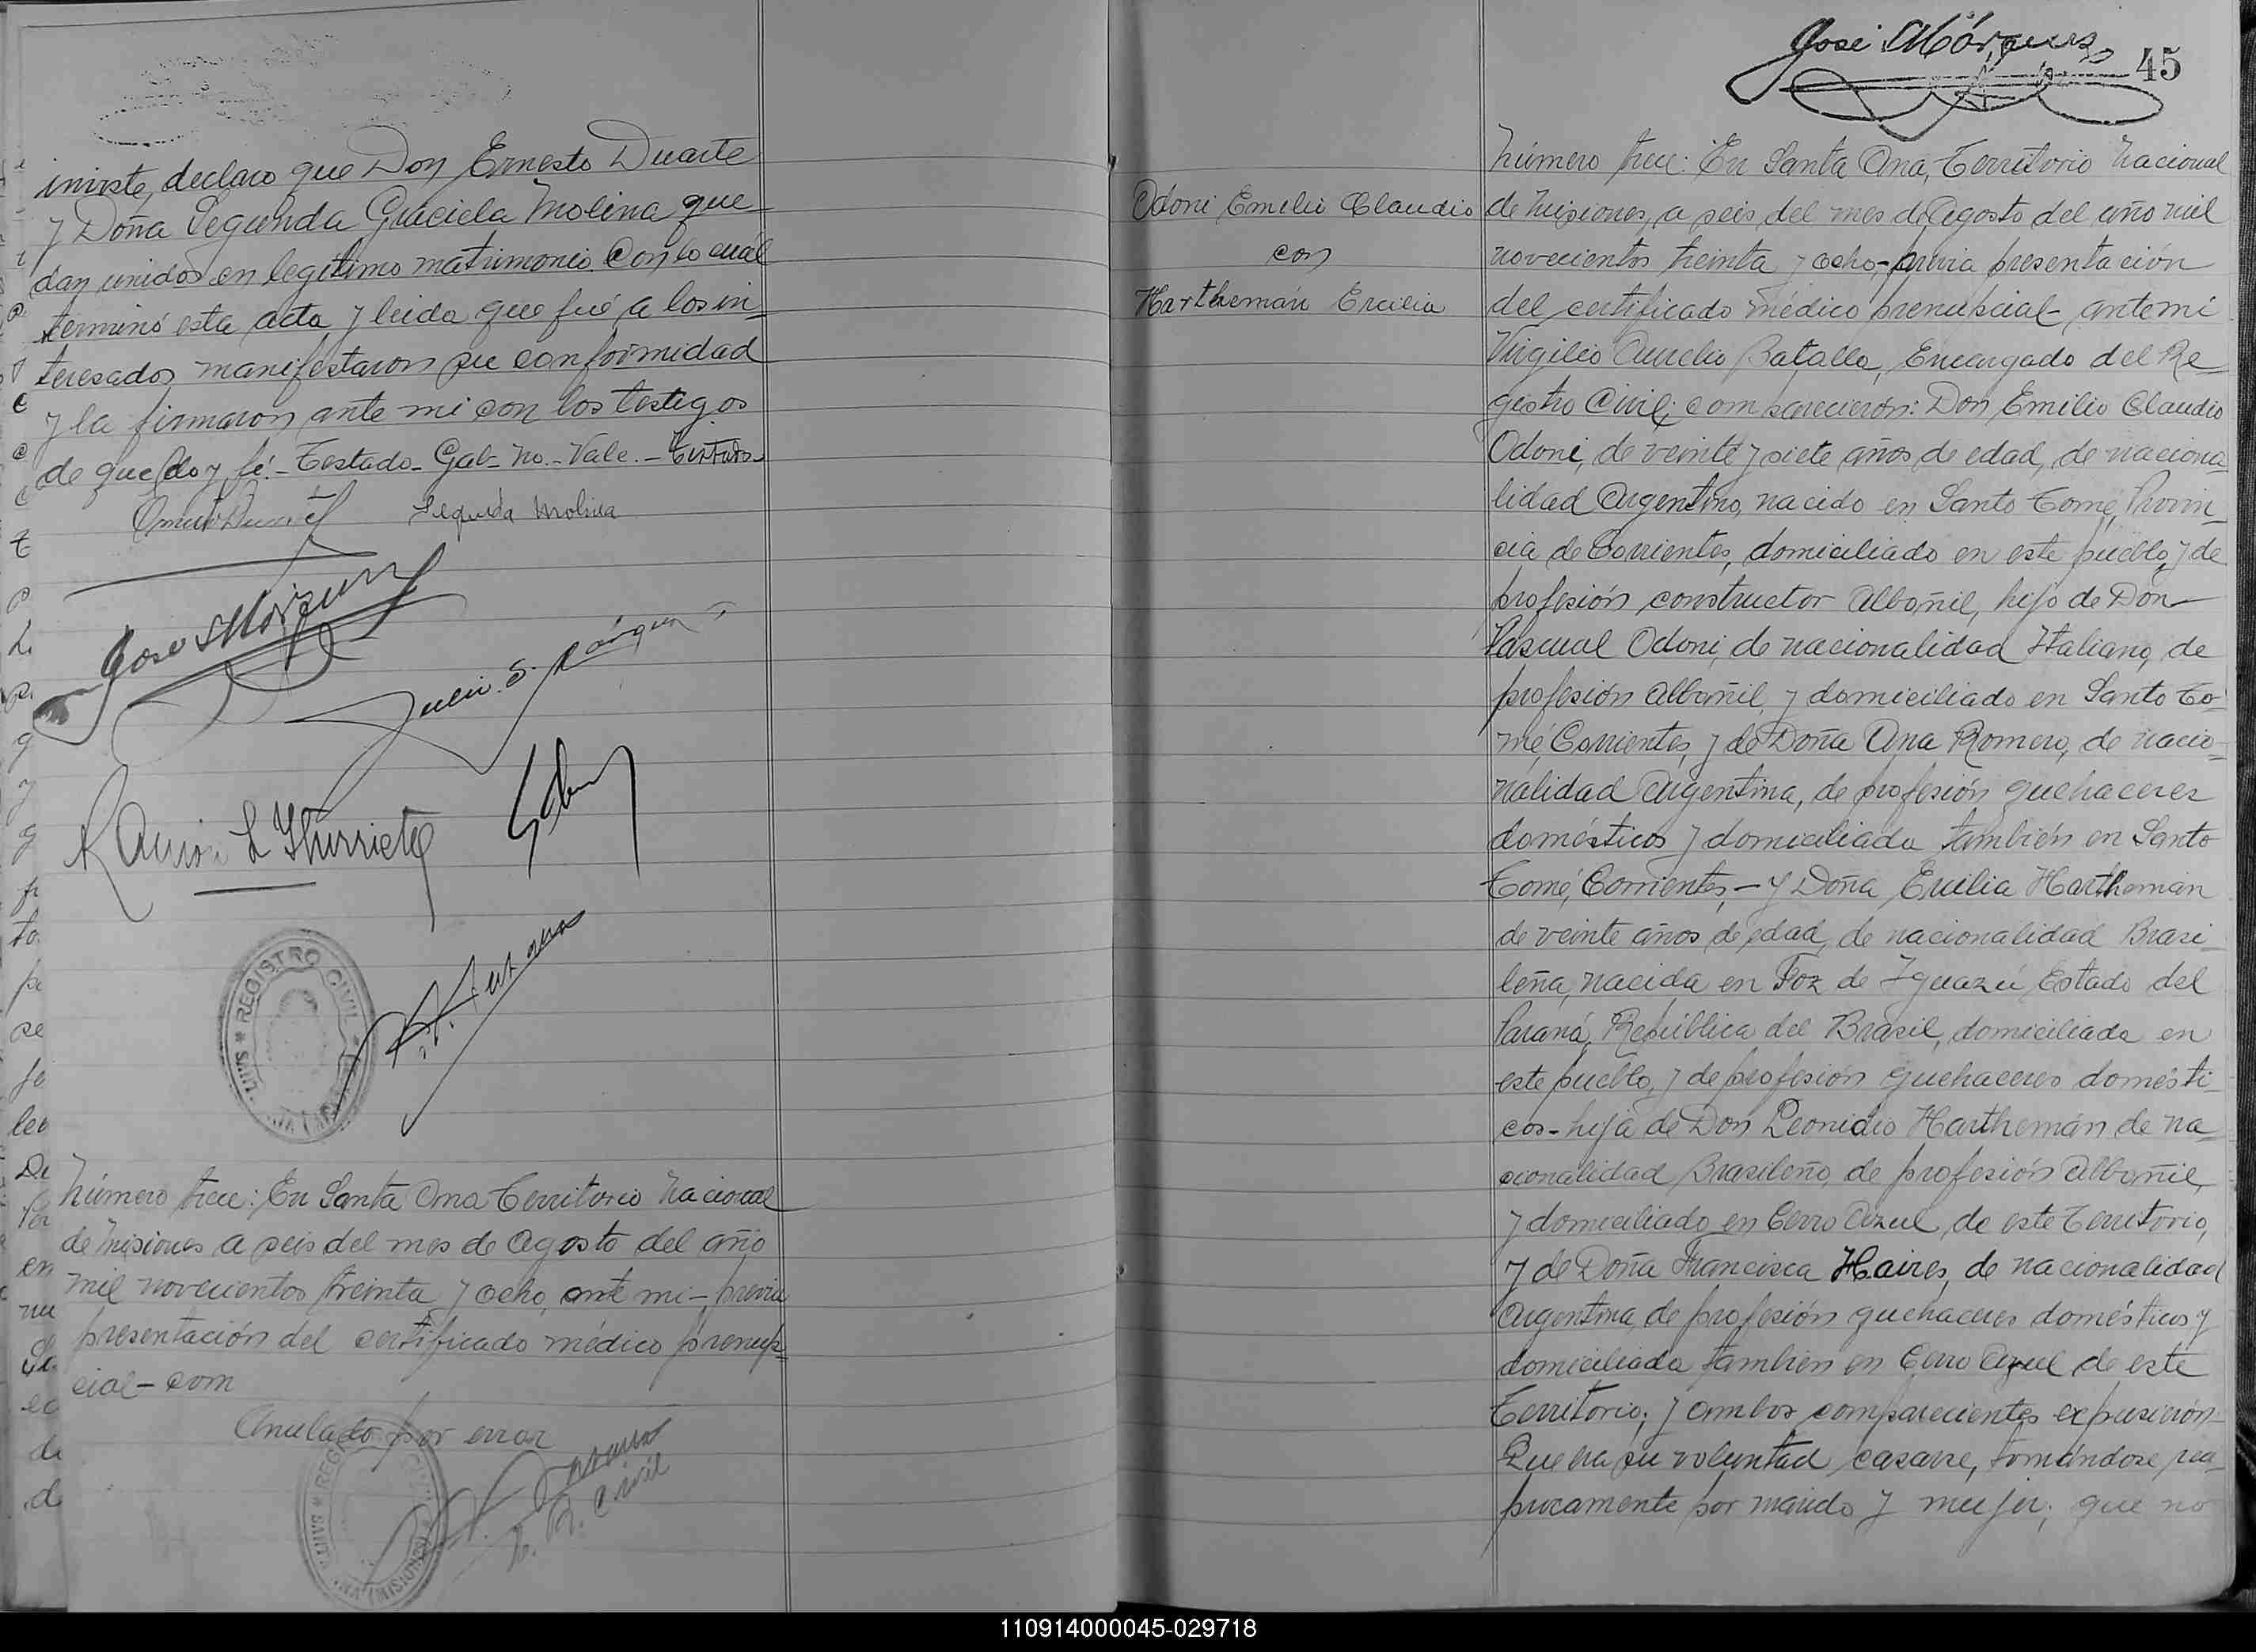 iniste, declaro que Don Ernesto Duarte
y Doña Segunda Graciela Molina que
dan unidos en legítimo matrimonio. Con lo cual
terminó esta acta y leida que fué a los in
teresados, manifestaron su conformidad
y la firmaron ante mi con los testigos
de que doy fé.- Testado- Gab- No.- Vale.-
Segunda Molina
José Márquez
Julio S. Márquez
Ramón L Iturriete
REGISTRO CIVIL
Número trece: En Santa Ana Territorio Nacional
de Misiones a seis del mes de Agosto del año
mil novecientos treinta y ocho, ante mi- previa
presentación del certificado médico prenup
cial- com
Anulado por error
E. R. Civil
José Márquez
45
Odoni Emilio Claudio
con
Hartheman Ercilia
Número trece: En Santa Ana, Territorio Nacional
de Misiones, a seis del mes de Agosto del año mil
novecientos treinta y ocho,- previa presentación
del certificado médico prenupcial- ante mi
Virgilio Aurelio Batalla, Encargado del Re
gistro Civil; comparecieron: Don Emilio Claudio
Odoni, de veinte y siete años de edad, de naciona
lidad Argentino, nacido en Santo Tomé, Provin
cia de Corrientes, domiciliado en este pueblo, y de
profesión constructor Albañil, hijo de Don
Pascual Odoni, de nacionalidad Italiano, de
profesión Albañil, y domiciliado en Santo To-
mé, Corrientes, y de Doña Ana Romero, de nacio-
nalidad Argentina, de profesión quehaceres
domésticos y domiciliada también en Santo
Tomé, Corrientes,- y Doña Ercilia Hartheman
de veinte años de edad, de nacionalidad Brasi
leña, nacida en Foz de Iguazú, Estado del
Paraná, República del Brasil, domiciliada en
este pueblo, y de profesión quehaceres domésti
cos- hija de Don Leonidio Harthemán de na
cionalidad Brasileño, de profesión Albañil,
y domiciliado en Cerro Azul, de este Territorio,
y de Doña Francisca Haires, de nacionalidad
Argentina, de profesión quehaceres domésticos y
domiciliada tambien en Cerro Azul de este
Territorio; y ambos comparecientes expusieron-
Que era su voluntad casarse, tomándose reci
procamente por marido y mujer; que no
110914000045-029718